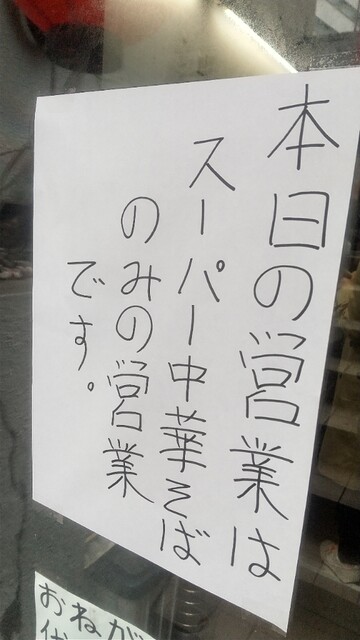 本日の営業は
スーパー中華そば
のみの営業
です。
おねが